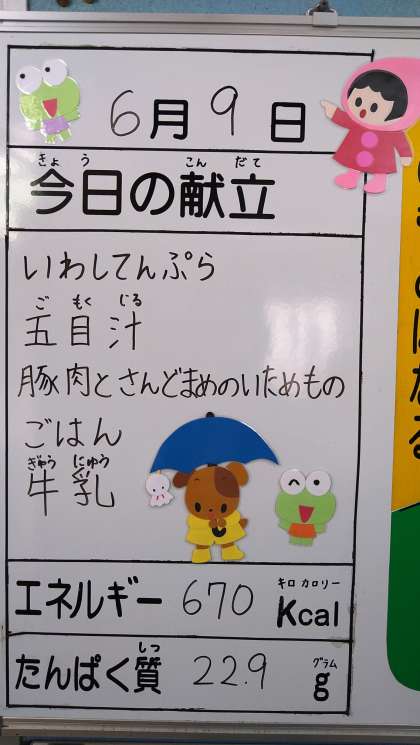 6月9日
きょう こんだて
今日の献立
いわしてんぷら
ごもくじる
五目汁
豚肉とさんどまめのいためもの
ごはん
ぎゅうにゅう
牛乳
キロカロリー
エネルギー 670 Kcal
しつ グラム
たんぱく質 22.9 g